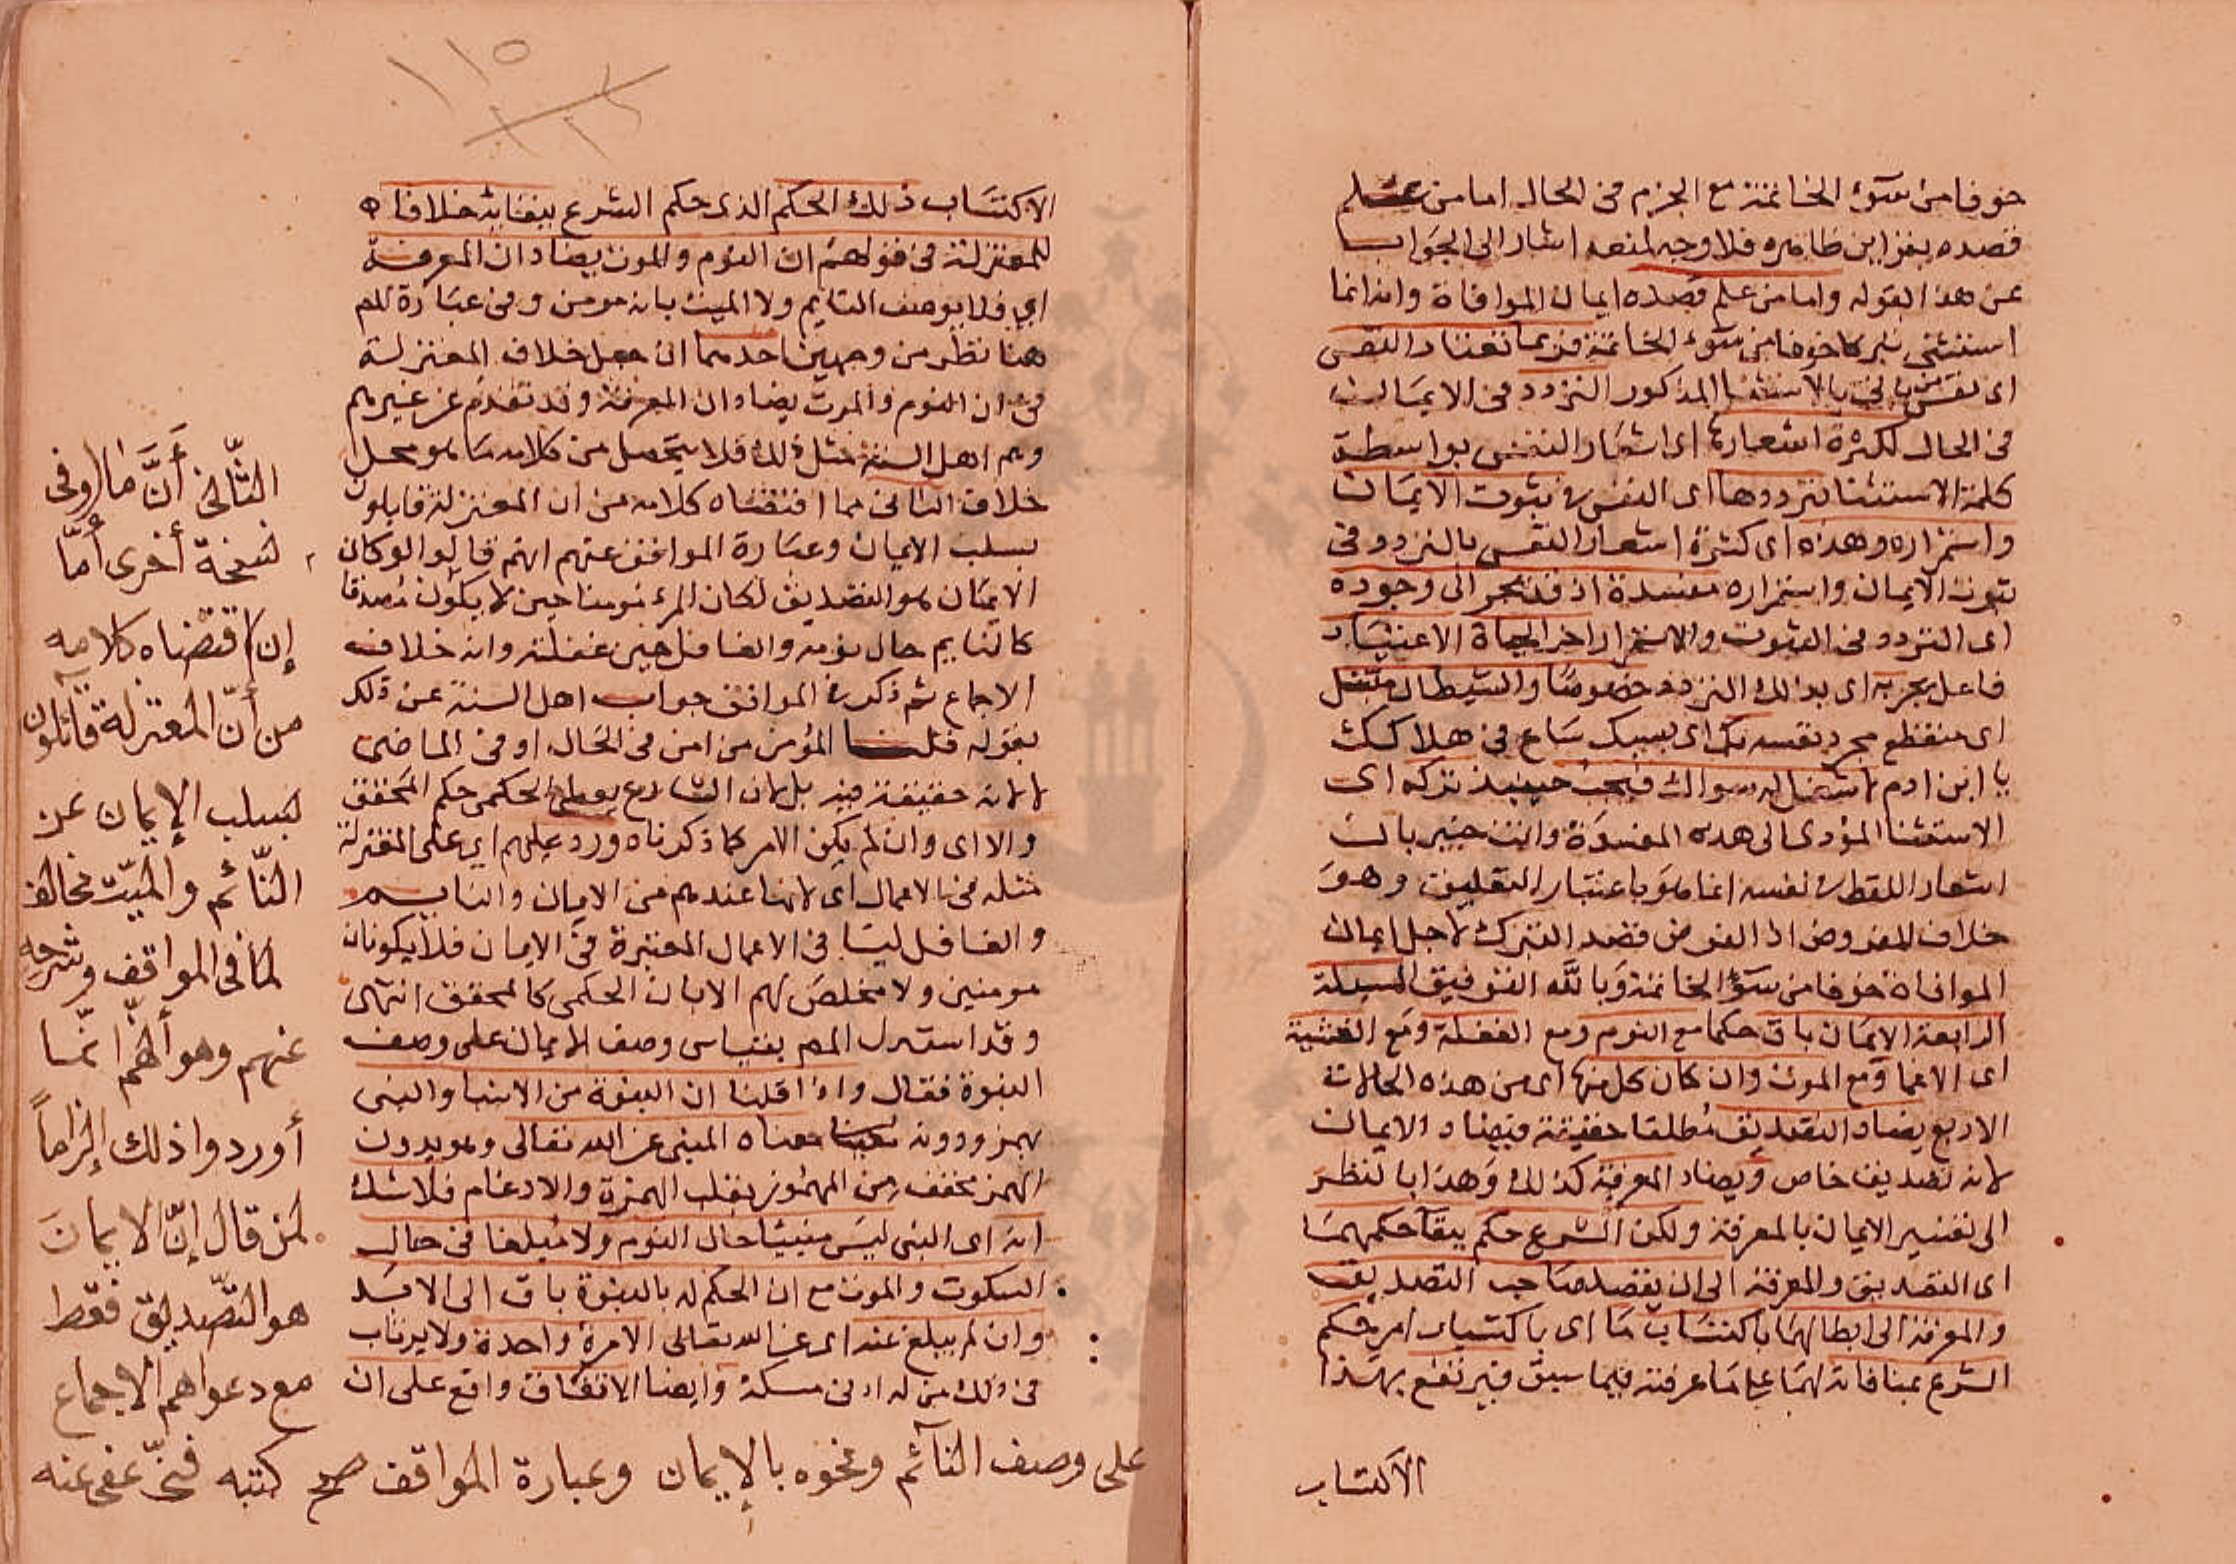 خوفا من سوء الخاتمة مع الجزم فى الحال اما من علم
قصده بقراين ظاهره فلا وجه لمنعه اشار الى الجواب
عن هذا بقوله واما من علم قصده ايمان الموافاة وانه انما
استثنى تبركا خوفا من سوء الخاتمة فربما تعتاد النفس
اى نفس الاتى بالاستثنا المذكور التردد فى الايمان
فى الحال لكثرة اشعارها اى اشعار النفس بواسطة
كلمة الاستثنا بترددها اى النفس فى ثبوت الايمان
واستمراره وهذه اى كثرة اشعار النفس بالتردد فى
ثبوت الايمان واستمراره مفسدة اذ قد تجر الى وجوده
اى التردد فى الثبوت والاستمرار اخر الحياة الاعتياد
فاعل تجر به اى بذلك التردد خصوصا والشيطان متبتل
اى منقطع مجرد نفسه بك اى بسببك ساع فى هلاكك
يا ابن ادم لا شغل له سواك فيجب حينيذ تركه اى
الاستثنا المؤدى الى هذه المفسدة وانت خبير بان
اشعار اللفظ فى نفسه انما هو باعتبار التعليق وهو
خلاف المفروض اذ الفرض قصد التبرك لاجل ايمان
الموافاة خوفا من سوء الخاتمة وبالله التوفيق المسيلة
الرابعة الايمان باق حكما مع النوم ومع الغفلة ومع الغشية
اى الاغما ومع الموت وان كان كل منها اى من هذه الحالات
الاربع يضاد التصديق مطلقا حقيقة فيضاد الايمان
لانه تصديق خاص ويضاد المعرفة كذلك وهذا بالنظر
الى تفسير الايمان بالمعرفة ولكن الشرع حكم ببقا حكمهما
اى التصديق والمعرفة الى ان يقصد صاحب التصديق
والمعرفة الى ابطالهما باكتساب ما اى باكتساب امر حكم
الشرع بمنافاته لهما على ما عرفته فيما سبق فيرتفع بهذا
الاكتساب
١١٥
الاكتساب ذلك الحكم الذى حكم الشرع ببقايه خلافا
للمعتزلة فى قولهم ان النوم والموت يضادان المعرفة
اى فلا يوصف النايم ولا الميت بانه مومن وفى عبارة المص
هنا نظر من وجهين احدهما ان جعل خلاف المعتزلة
فى ان النوم والموت يضادان المعرفة وقد تقدم عن غيرهم
وهم اهل السنة مثل ذلك فلا يتحصل من كلامه ما هو محل
خلاف الثانى مما اقتضاه كلامه من ان المعتزلة قايلون
بسلب الايمان وعبارة المواقف عنهم انهم قالوا لو كان
الايمان هو التصديق لكان المرء مومنا حين لا يكون مصدقا
كالنايم حال نومه والغافل حين غفلته وانه خلاف
الاجماع ثم ذكر فى المواقف جواب اهل السنة عن ذلك
بقوله قلنا المؤمن من امن فى الحال او فى الماضى
لا لانه حقيقة فيه بل لان الشارع يعطى الحكمى حكم المحقق
والا اى وان لم يكن الامر كما ذكرناه ورد عليهم اى على المعتزلة
مثله فى الاعمال اى لانها عندهم من الايمان والنايم
والغافل ليسا فى الاعمال المعتبرة فى الايمان فلا يكونان
مومنين ولا مخلص لهم الا بان الحكمى كالمحقق انتهى
وقد استدل المص بقياس وصف الايمان على وصف
النبوة فقال واذا قلنا ان النبوة من الانبا والنبى
بهمز ودونه معناه المنبى عن الله تعالى وهو بدون
الهمز مخفف من المهموز بقلب الهمزة والادغام فلا شك
انه اى النبى ليس منبيا حال النوم ولا مبلغا فى حال
السكوت والموت مع ان الحكم له بالنبوة باق الى الابد
وان لم يبلغ عنه اى عن الله تعالى الا مرة واحدة ولا يرتاب
فى ذلك من له ادنى مسكة وايضا الاتفاق واقع على ان
الثّانى أنَّ ما (وفى
نسخة أخرى أمّا
إن) اقتضاه كلامه
من أنّ المعتزلة قآئلون
بسلب الإيمان عن
النّائم والميّت مخالف
لما فى المواقف وشرحه
عنهم وهو أنّهم إنّما
أوردوا ذلك إلزاماً
لمن قال إنّ الايمان
هو التّصديق فقط
مع دعواهم الاجماع
على وصف النآئم ونحوه بالإيمان وعبارة المواقف صح كتبه عفى عنه